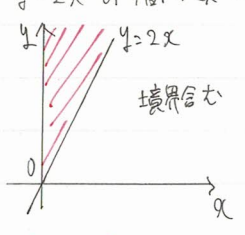 y
y=2x
境界含む
0
x